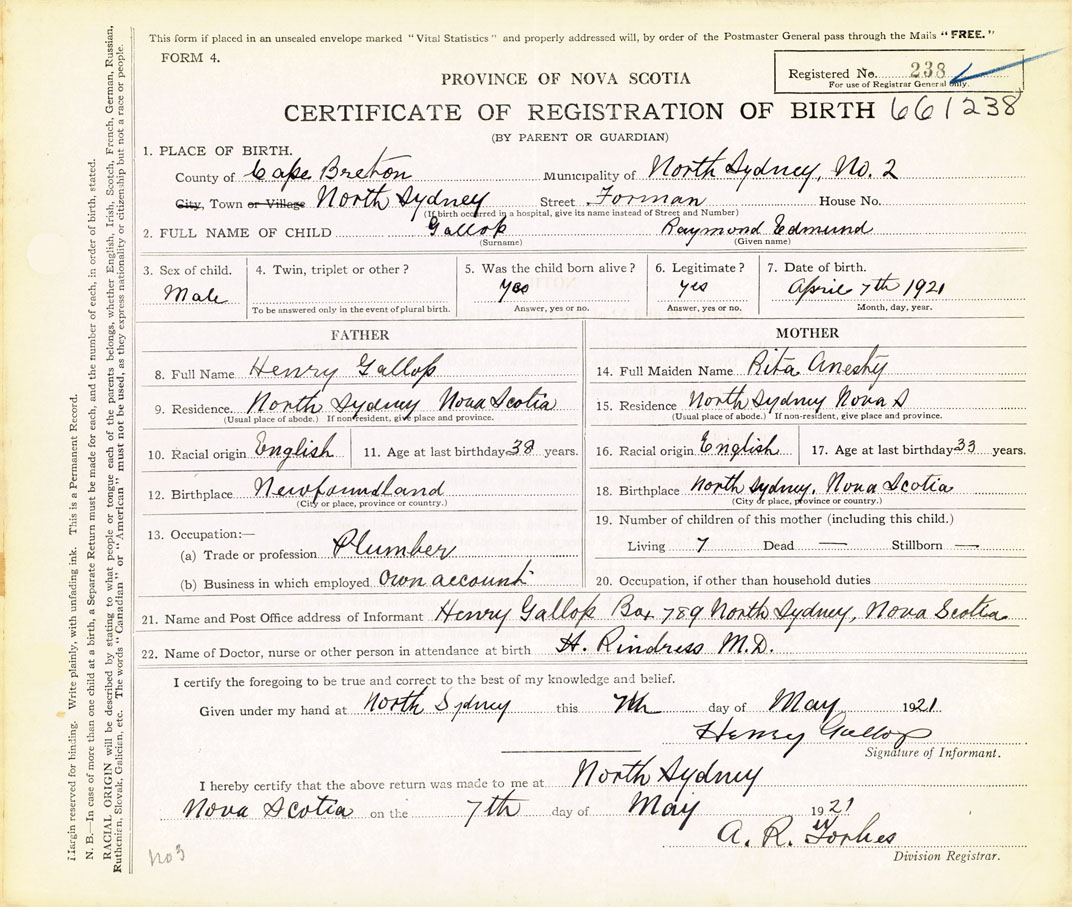 This form if placed in an unsealed envelope marked "Vital Statistics" and properly addressed will, by order of the Postmaster General pass through the Mails "FREE."
FORM 4.
Registered No. 238
For use of Registrar General only.
PROVINCE OF NOVA SCOTIA
CERTIFICATE OF REGISTRATION OF BIRTH 661238
(BY PARENT OR GUARDIAN)
1. PLACE OF BIRTH.
County of Cape Breton Municipality of North Sydney, No. 2
City, Town or Village North Sydney Street Forman House No.
(If birth occurred in a hospital, give its name instead of Street and Number)
2. FULL NAME OF CHILD Gallop Raymond Edmund
(Surname) (Given name)
3. Sex of child. 4. Twin, triplet or other? 5. Was the child born alive? 6. Legitimate? 7. Date of birth.
Male yes yes April 7th 1921
To be answered only in the event of plural birth. Answer, yes or no. Answer, yes or no. Month, day, year.
FATHER
8. Full Name Henry Gallop
9. Residence. North Sydney Nova Scotia
(Usual place of abode.) If non-resident, give place and province.
10. Racial origin English 11. Age at last birthday 38 years.
12. Birthplace Newfoundland
(City or place, province or country.)
13. Occupation:—
(a) Trade or profession Plumber
(b) Business in which employed Own account
MOTHER
14. Full Maiden Name Rita Anesty
15. Residence North Sydney Nova S
(Usual place of abode.) If non-resident, give place and province.
16. Racial origin English 17. Age at last birthday 33 years.
18. Birthplace North Sydney, Nova Scotia
(City or place, province or country.)
19. Number of children of this mother (including this child.)
Living 7 Dead — Stillborn —
20. Occupation, if other than household duties
21. Name and Post Office address of Informant Henry Gallop Box 789 North Sydney, Nova Scotia
22. Name of Doctor, nurse or other person in attendance at birth H. Rindress M.D.
I certify the foregoing to be true and correct to the best of my knowledge and belief.
Given under my hand at North Sydney this 7th day of May 1921
Henry Gallop
Signature of Informant.
I hereby certify that the above return was made to me at North Sydney
Nova Scotia on the 7th day of May 1921
A. R. Forbes
Division Registrar.
No 3
Margin reserved for binding. Write plainly, with unfading ink. This is a Permanent Record.
N. B.—In case of more than one child at a birth, a Separate Return must be made for each, and the number of each, in order of birth, stated.
RACIAL ORIGIN will be described by stating to what people or tongue each of the parents belongs, whether English, Irish, Scotch, French, German, Russian,
Ruthenian, Slovak, Galician, etc. The words "Canadian" or "American" must not be used, as they express nationality or citizenship but not a race or people.